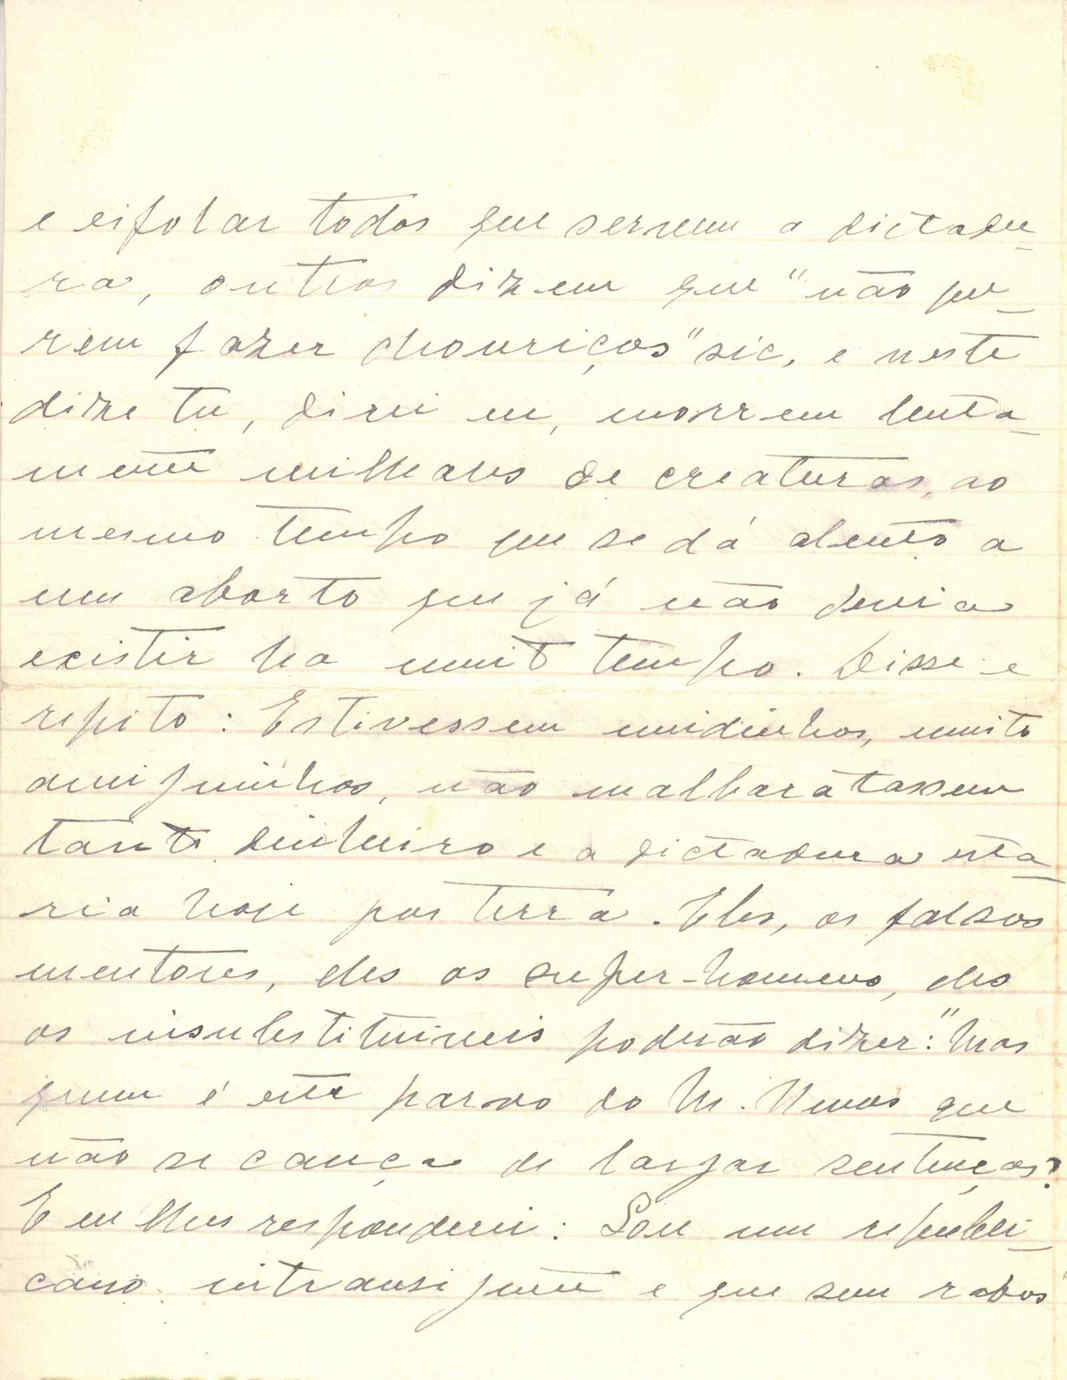 e esfolar todos que servem a dictadu-
ra, outros dizem que "não que-
rem fazer chouriços" sic, e neste
dize tu, direi eu, morrem lenta-
mente milhares de creaturas, ao
mesmo tempo que se dá alento a
um aborto que já não devia
existir ha muito tempo. Disse e
repito: Estivessem unidinhos, muito
amiguinhos, não malbaratassem
tanto dinheiro e a dictadura esta-
ria hoje por terra. Eles, os falsos
mentores, eles os super-homens, eles
os insubstituiveis poderão dizer: "Mas
quem é este parvo do M. Neves que
não se cança de largar sentenças?
E eu lhes responderei: Sou um republi-
cano intransigente e que sem rabos